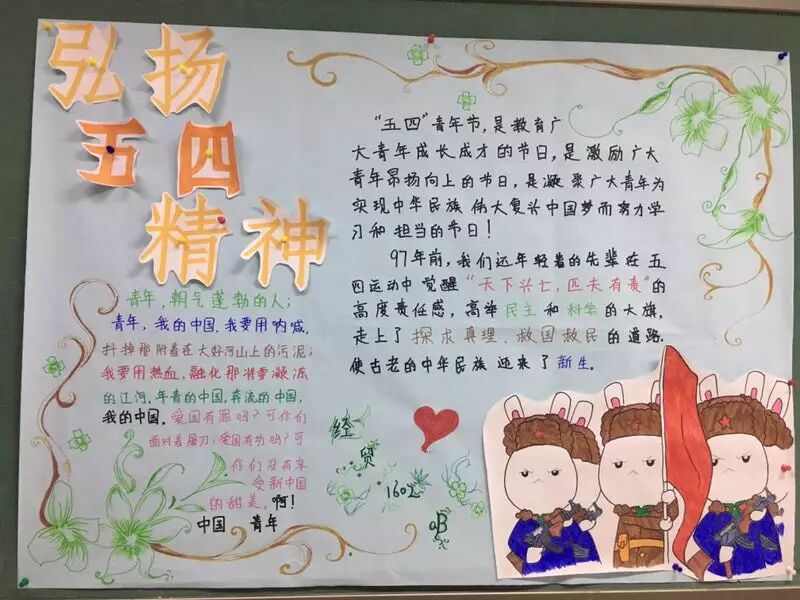 弘扬
五四
精神
青年,朝气蓬勃的人;
青年,我的中国.我要用呐喊,
抖掉那附着在大好河山上的污泥;
我要用热血,融化那冰雪凝冻
的江河.年青的中国,奔流的中国,
我的中国。爱国有罪吗?可你们
面对着屠刀;爱国有功吗?可
你们没有享
受新中国
的甜美。啊!
中国 青年
“五四”青年节,是教育广
大青年成长成才的节日,是激励广大
青年昂扬向上的节日,是凝聚广大青年为
实现中华民族伟大复兴中国梦而努力学
习和担当的节日!
97年前,我们还年轻着的先辈在五
四运动中觉醒“天下兴亡,匹夫有责”的
高度责任感,高举民主和科学的大旗,
走上了探求真理、救国救民的道路.
使古老的中华民族迎来了新生。
经
贸
1602
B